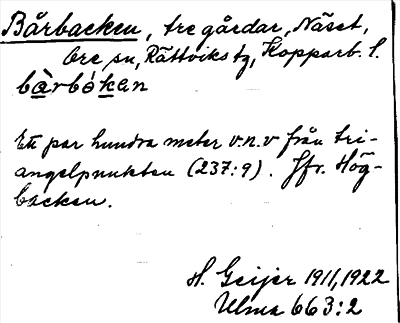 Bårbacken, tre gårdar, Näset,
Ore sn, Rättviks tg, Kopparb. l.
bàrbókan
Ett par hundra meter v.n.v från tri-
angelpunkten (237:9). Jfr. Hög-
backen.
H. Geijer 1911, 1922
Ulma 663:2